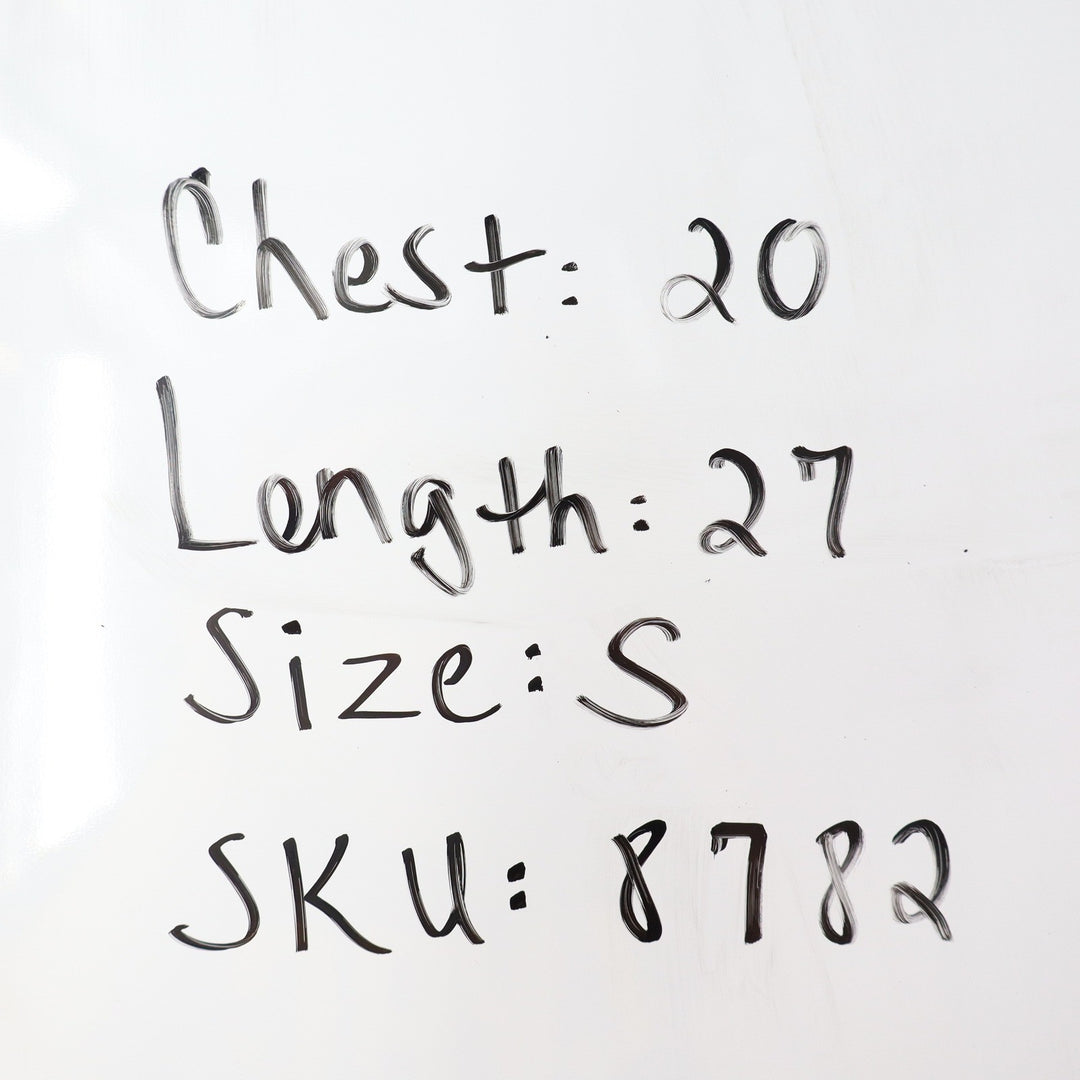 Chest: 20
Length: 27
Size: S
SKU: 8782